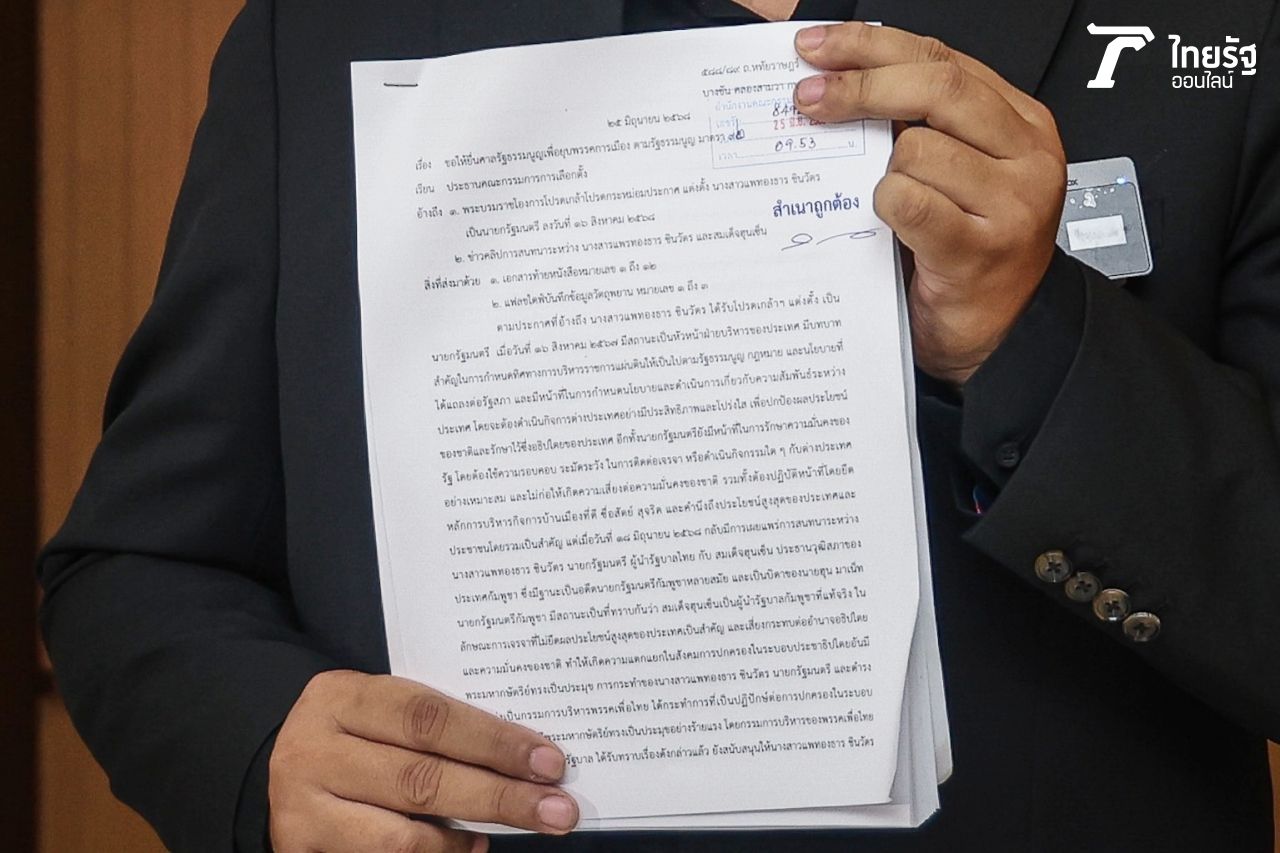 ไทยรัฐ
ออนไลน์
๕๘๘/๘๙ ถ.หทัยราษฎร์
บางชัน คลองสามวา
สำนักงานคณะกรรม
เลขรับ 849
25 มิ.ย.
เวลา 09.53 น.
๒๕ มิถุนายน ๒๕๖๘
เรื่อง ขอให้ยื่นศาลรัฐธรรมนูญเพื่อยุบพรรคการเมือง ตามรัฐธรรมนูญ มาตรา ๙๒
เรียน ประธานคณะกรรมการการเลือกตั้ง
อ้างถึง ๑. พระบรมราชโองการโปรดเกล้าโปรดกระหม่อมประกาศ แต่งตั้ง นางสาวแพทองธาร ชินวัตร
เป็นนายกรัฐมนตรี ลงวันที่ ๑๖ สิงหาคม ๒๕๖๘
สำเนาถูกต้อง
๒. ข่าวคลิปการสนทนาระหว่าง นางสารแพรทองธาร ชินวัตร และสมเด็จฮุนเซ็น
สิ่งที่ส่งมาด้วย ๑. เอกสารท้ายหนังสือหมายเลข ๑ ถึง ๑๒
๒. แฟลชไดฟ์บันทึกข้อมูลวัตถุพยาน หมายเลข ๑ ถึง ๓
ตามประกาศที่อ้างถึง นางสาวแพทองธาร ชินวัตร ได้รับโปรดเกล้าฯ แต่งตั้ง เป็น
นายกรัฐมนตรี เมื่อวันที่ ๑๖ สิงหาคม ๒๕๖๗ มีสถานะเป็นหัวหน้าฝ่ายบริหารของประเทศ มีบทบาท
สำคัญในการกำหนดทิศทางการบริหารราชการแผ่นดินให้เป็นไปตามรัฐธรรมนูญ กฎหมาย และนโยบายที่
ได้แถลงต่อรัฐสภา และมีหน้าที่ในการกำหนดนโยบายและดำเนินการเกี่ยวกับความสัมพันธ์ระหว่าง
ประเทศ โดยจะต้องดำเนินกิจการต่างประเทศอย่างมีประสิทธิภาพและโปร่งใส เพื่อปกป้องผลประโยชน์
ของชาติและรักษาไว้ซึ่งอธิปไตยของประเทศ อีกทั้งนายกรัฐมนตรียังมีหน้าที่ในการรักษาความมั่นคงของ
รัฐ โดยต้องใช้ความรอบคอบ ระมัดระวัง ในการติดต่อเจรจา หรือดำเนินกิจกรรมใด ๆ กับต่างประเทศ
อย่างเหมาะสม และไม่ก่อให้เกิดความเสี่ยงต่อความมั่นคงของชาติ รวมทั้งต้องปฏิบัติหน้าที่โดยยึด
หลักการบริหารกิจการบ้านเมืองที่ดี ซื่อสัตย์ สุจริต และคำนึงถึงประโยชน์สูงสุดของประเทศและ
ประชาชนโดยรวมเป็นสำคัญ แต่เมื่อวันที่ ๑๘ มิถุนายน ๒๕๖๘ กลับมีการเผยแพร่การสนทนาระหว่าง
นางสาวแพทองธาร ชินวัตร นายกรัฐมนตรี ผู้นำรัฐบาลไทย กับ สมเด็จฮุนเซ็น ประธานวุฒิสภาของ
ประเทศกัมพูชา ซึ่งมีฐานะเป็นอดีตนายกรัฐมนตรีกัมพูชาหลายสมัย และเป็นบิดาของนายฮุน มาเน็ท
นายกรัฐมนตรีกัมพูชา มีสถานะเป็นที่ทราบกันว่า สมเด็จฮุนเซ็นเป็นผู้นำรัฐบาลกัมพูชาที่แท้จริง ใน
ลักษณะการเจรจาที่ไม่ยึดผลประโยชน์สูงสุดของประเทศเป็นสำคัญ และเสี่ยงกระทบต่ออำนาจอธิปไตย
และความมั่นคงของชาติ ทำให้เกิดความแตกแยกในสังคมการปกครองในระบอบประชาธิปไตยอันมี
พระมหากษัตริย์ทรงเป็นประมุข การกระทำของนางสาวแพทองธาร ชินวัตร นายกรัฐมนตรี และดำรง
เป็นกรรมการบริหารพรรคเพื่อไทย ได้กระทำการที่เป็นปฏิปักษ์ต่อการปกครองในระบอบ
พระมหากษัตริย์ทรงเป็นประมุขอย่างร้ายแรง โดยกรรมการบริหารของพรรคเพื่อไทย
รัฐบาล ได้รับทราบเรื่องดังกล่าวแล้ว ยังสนับสนุนให้นางสาวแพทองธาร ชินวัตร